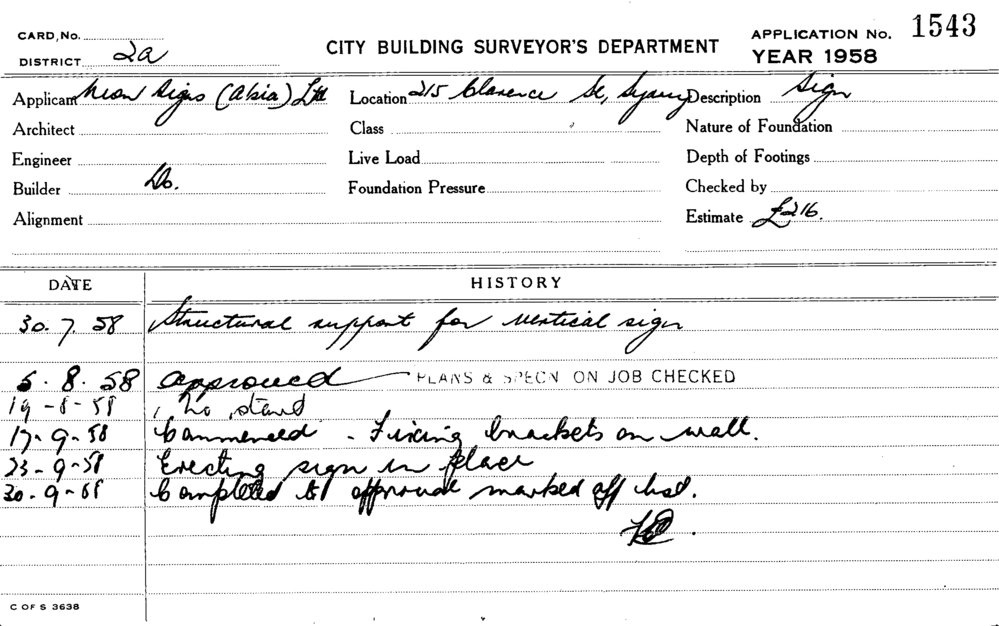 CARD, No.
CITY BUILDING SURVEYOR'S DEPARTMENT
APPLICATION No. 1543
DISTRICT 2a
YEAR 1958
Applicant Neon Signs (Asia) Ltd
Location 215 Clarence St, Sydney
Description Sign
Architect
Class
Nature of Foundation
Engineer
Live Load
Depth of Footings
Builder Do.
Foundation Pressure
Checked by
Alignment
Estimate £216.
DATE HISTORY
30. 7. 58 Structural support for vertical sign
5. 8. 58 Approved PLANS & SPECN ON JOB CHECKED
19-8-58 No start
17-9-58 Commenced - Fixing brackets on wall.
23-9-58 Erecting sign in place
30-9-58 Completed to approval marked off list.
C OF S 3638